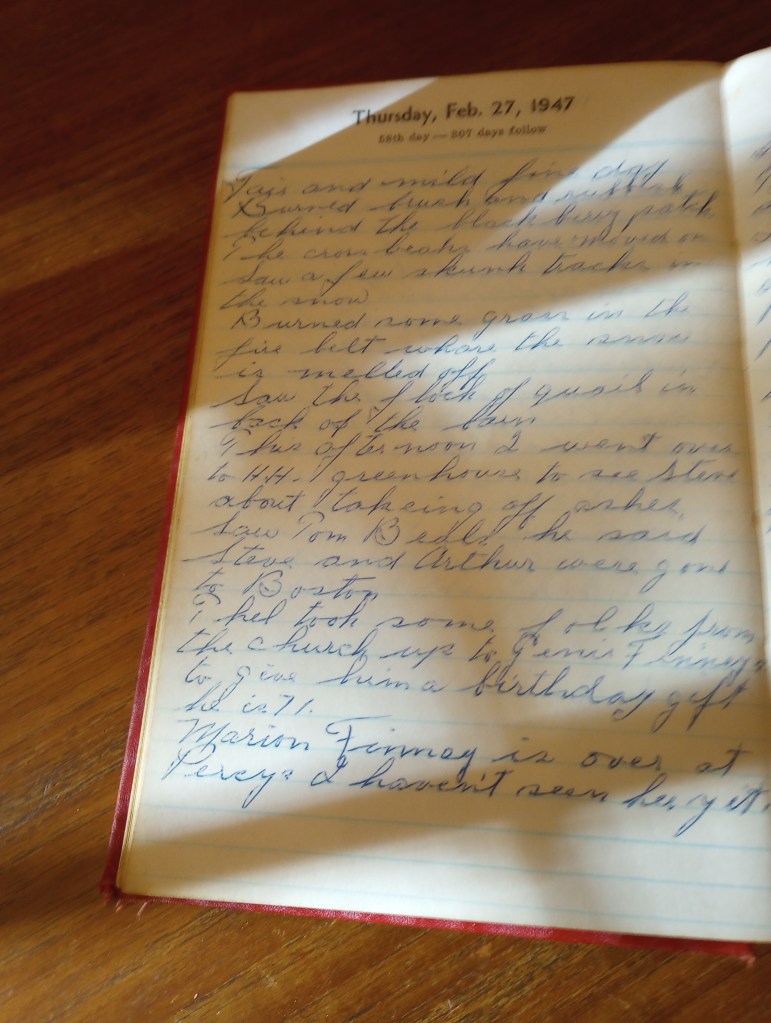 Thursday, Feb. 27, 1947
58th day — 307 days follow
Fair and mild fine day
Burned brush and rubbish
behind the black berry patch
The cross beaks have moved on
Saw a few skunk tracks in
the snow
Burned some grass in the
fire belt whare the snow
is melted off
Saw the flock of quail in
back of the barn
This after noon I went over
to H.H. greenhouse to see Steve
about takeing off ashes
Saw Tom Beals he said
Steve and Arthur were gone
to Boston
Thel took some folks from
the church up to Finney's
to give him a birthday gift
he is 71.
Marion Finney is over at
Percys I haven't seen her yet.